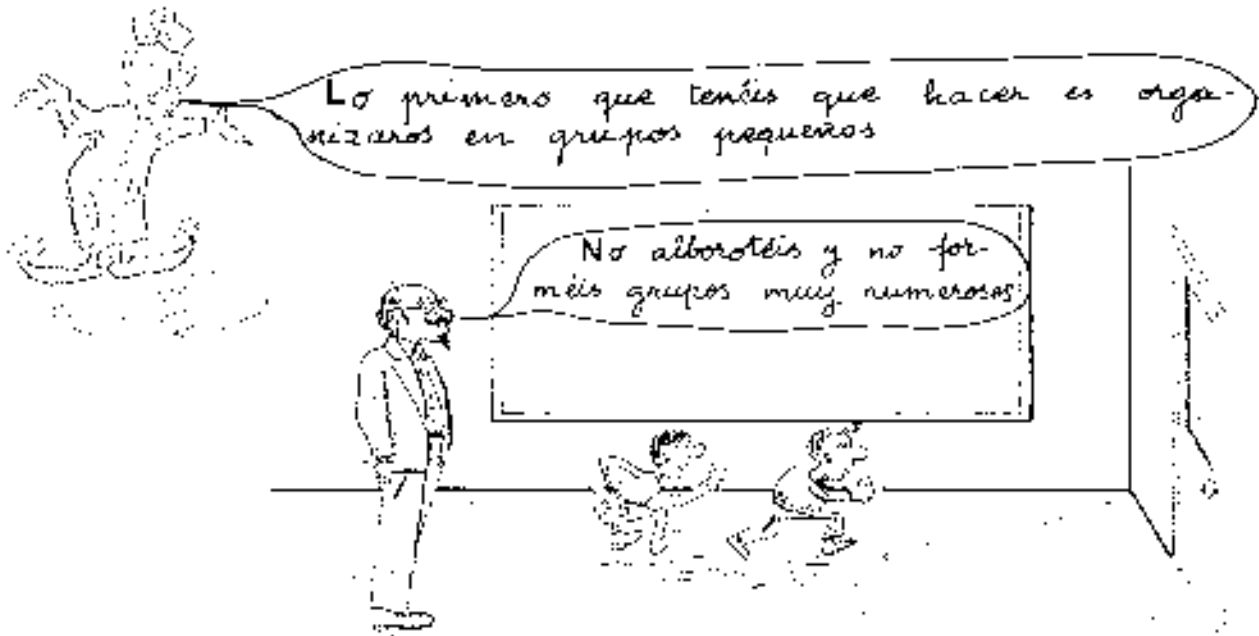 Lo primero que tenéis que hacer es orga-
nizaros en grupos pequeños
No alborotéis y no for-
méis grupos muy numerosos